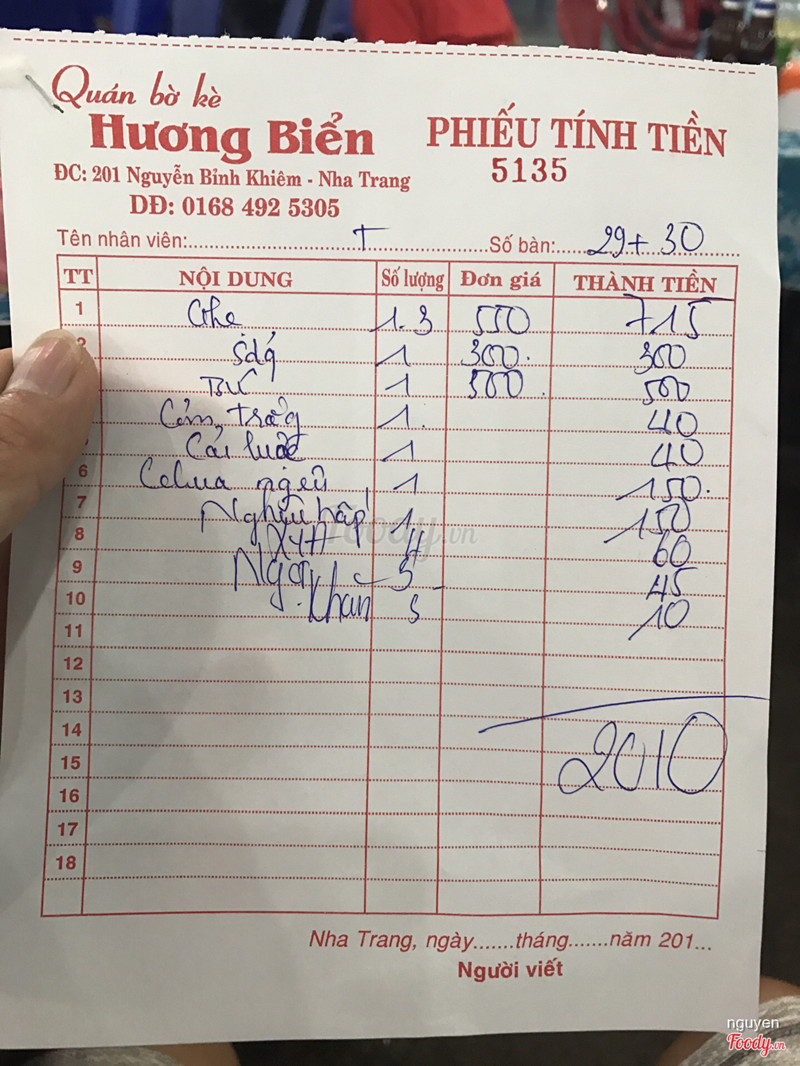 Quán bờ kè
Hương Biển
ĐC: 201 Nguyễn Bỉnh Khiêm - Nha Trang
DĐ: 0168 492 5305
PHIẾU TÍNH TIỀN
5135
Tên nhân viên: T Số bàn: 29+30
TT NỘI DUNG Số lượng Đơn giá THÀNH TIỀN
1 Ghẹ 1.3 550 715
1 300. 300
1 500. 500
1. 40
Cải luộc 1 40
6 1 150.
7 Nghêu hấp 1 150
8 4 60
9 5 45
10 Khăn 5 10
11
12
13
14 2010
15
16
17
18
Nha Trang, ngày.......tháng.......năm 201...
Người viết
Foody.vn
nguyen
Foody.vn